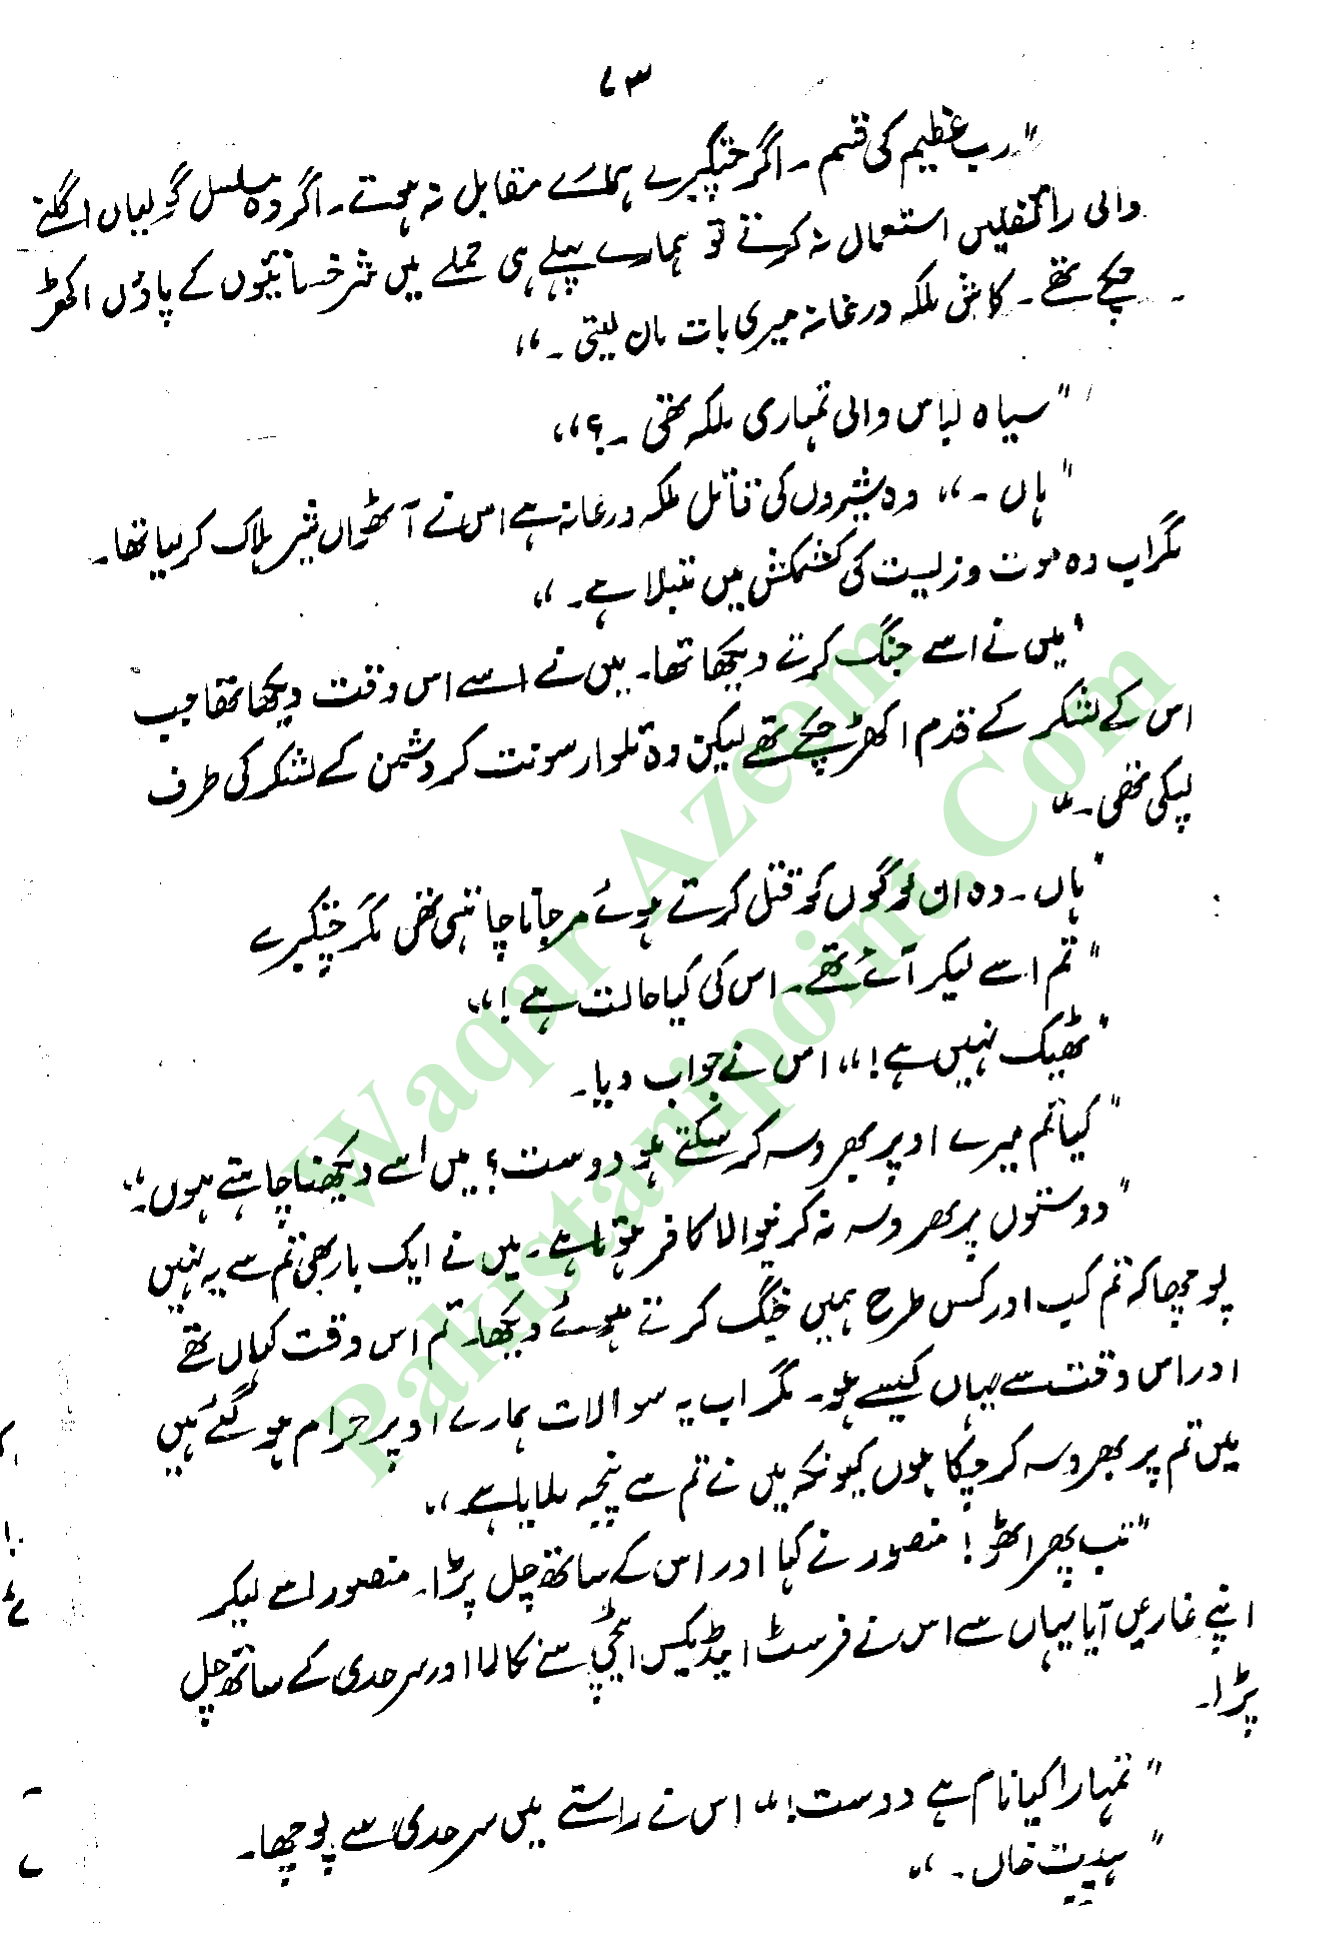 ۷۳
"رب عظیم کی قسم ۔ اگر چتکبرے ہمارے مقابل نہ ہوتے ۔ اگر وہ مسلسل گولیاں اگلنے
والی رائفلیں استعمال نہ کرتے تو ہمارے پہلے ہی حملے میں شرخسانیوں کے پاؤں اکھڑ
چکے تھے ۔ کاش ملکہ درغانہ میری بات مان لیتی ۔"
"سیاہ لباس والی تمہاری ملکہ تھی ۔؟"
"ہاں ۔" وہ شیروں کی قاتل ملکہ درغانہ ہے اس نے آٹھواں شیر ہلاک کر لیا تھا ۔
مگر اب وہ موت و زیست کی کشمکش میں مبتلا ہے ۔"
"میں نے اسے جنگ کرتے دیکھا تھا ۔ میں نے اسے اس وقت دیکھا تھا جب
اس کے لشکر کے قدم اکھڑ چکے تھے لیکن وہ تلوار سونت کر دشمن کے لشکر کی طرف
لپکی تھی ۔"
"ہاں ۔ وہ ان لوگوں کو قتل کرتے ہوئے مر جانا چاہتی تھی مگر چتکبرے
"تم اسے لیکر آئے تھے ۔ اس کی کیا حالت ہے !"
"ٹھیک نہیں ہے !" اس نے جواب دیا ۔
"کیا تم میرے اوپر بھروسہ کر سکتے ہو دوست ؟ میں اسے دیکھنا چاہتے ہوں ۔"
"دوستوں پر بھروسہ نہ کرنیوالا کافر ہوتا ہے ۔ میں نے ایک بار بھی تم سے یہ نہیں
پوچھا کہ تم کب اور کس طرح ہمیں جنگ کرتے ہوئے دیکھا۔ تم اس وقت کہاں تھے
اور اس وقت سے یہاں کیسے ہو ۔ مگر اب یہ سوالات ہمارے اوپر حرام ہو گئے ہیں
میں تم پر بھروسہ کر چکا ہوں کیونکہ میں نے تم سے پنجہ ملایا ہے ۔"
"تب پھر اٹھو ! منصور نے کہا اور اس کے ساتھ چل پڑا۔ منصور اسے لیکر
اپنے غار میں آیا یہاں سے اس نے فرسٹ ایڈ بکس اٹیچی سے نکالا اور سرحدی کے ساتھ چل
پڑا۔
"تمہارا کیا نام ہے دوست !" اس نے راستے میں سرحدی سے پوچھا ۔
"ہیبت خاں ۔"
Waqar Azeem
Pakistanipoint.Com